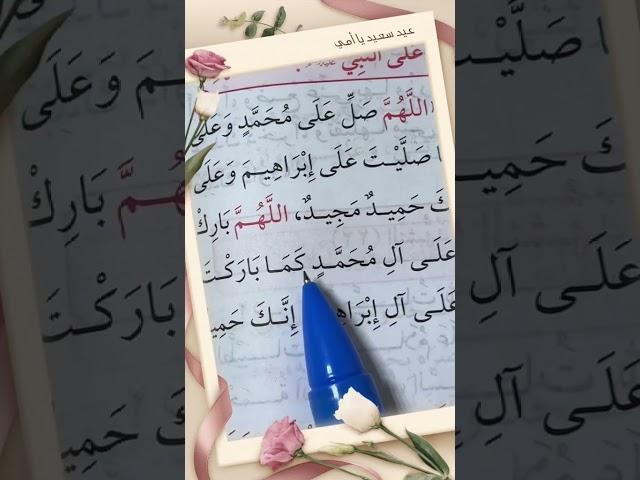 عيد سعيد يا أمي
على النبي
اللَّهُمَّ صَلِّ عَلَى مُحَمَّدٍ وَعَلَى
صَلَّيْتَ عَلَى إِبْرَاهِيمَ وَعَلَى
حَمِيدٌ مَجِيدٌ، اللَّهُمَّ بَارِكْ
عَلَى آلِ مُحَمَّدٍ كَمَا بَارَكْتَ
عَلَى آلِ إِبْرَاهِ إِنَّكَ حَمِي